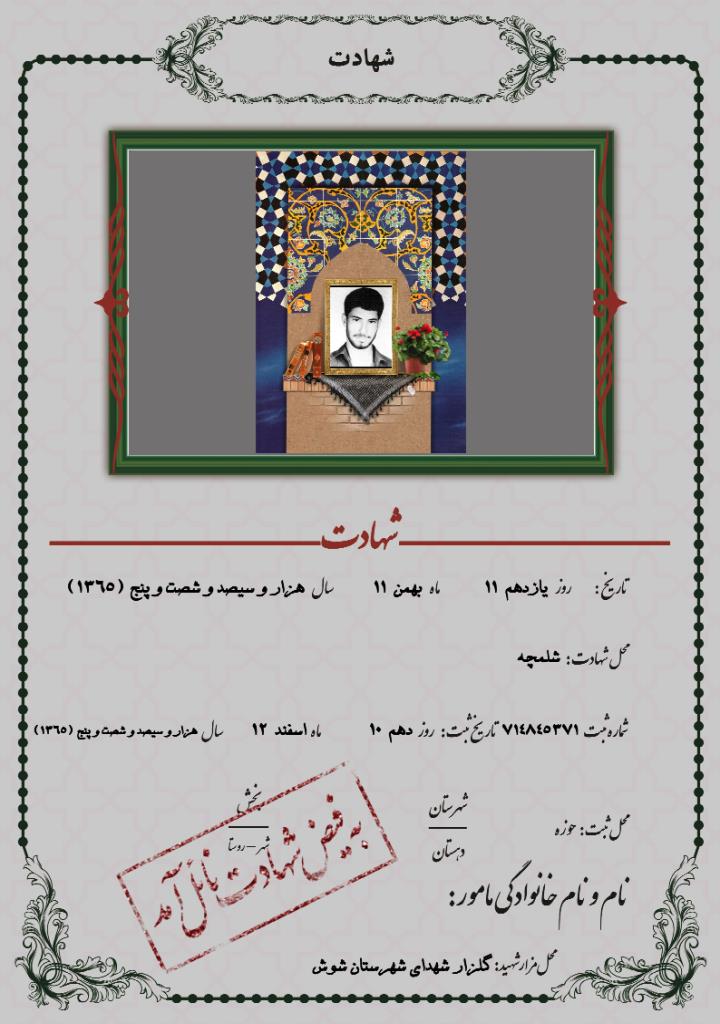 شهادت
شهادت
تاریخ: روز یازدهم ۱۱ ماه بهمن ۱۱ سال هزار و سیصد و شصت و پنج (۱۳۶۵)
محل شهادت: شلمچه
شماره ثبت ۷۱۴۸۴۵۳۷۱ تاریخ ثبت: روز دهم ۱۰ ماه اسفند ۱۲ سال هزار و سیصد و شصت و پنج (۱۳۶۵)
محل ثبت: حوزه شهرستان بخش
دهستان شهر-روستا
به فیض شهادت نائل آمد
نام و نام خانوادگی مامور:
محل مزار شهید: گلزار شهدای شهرستان شوش